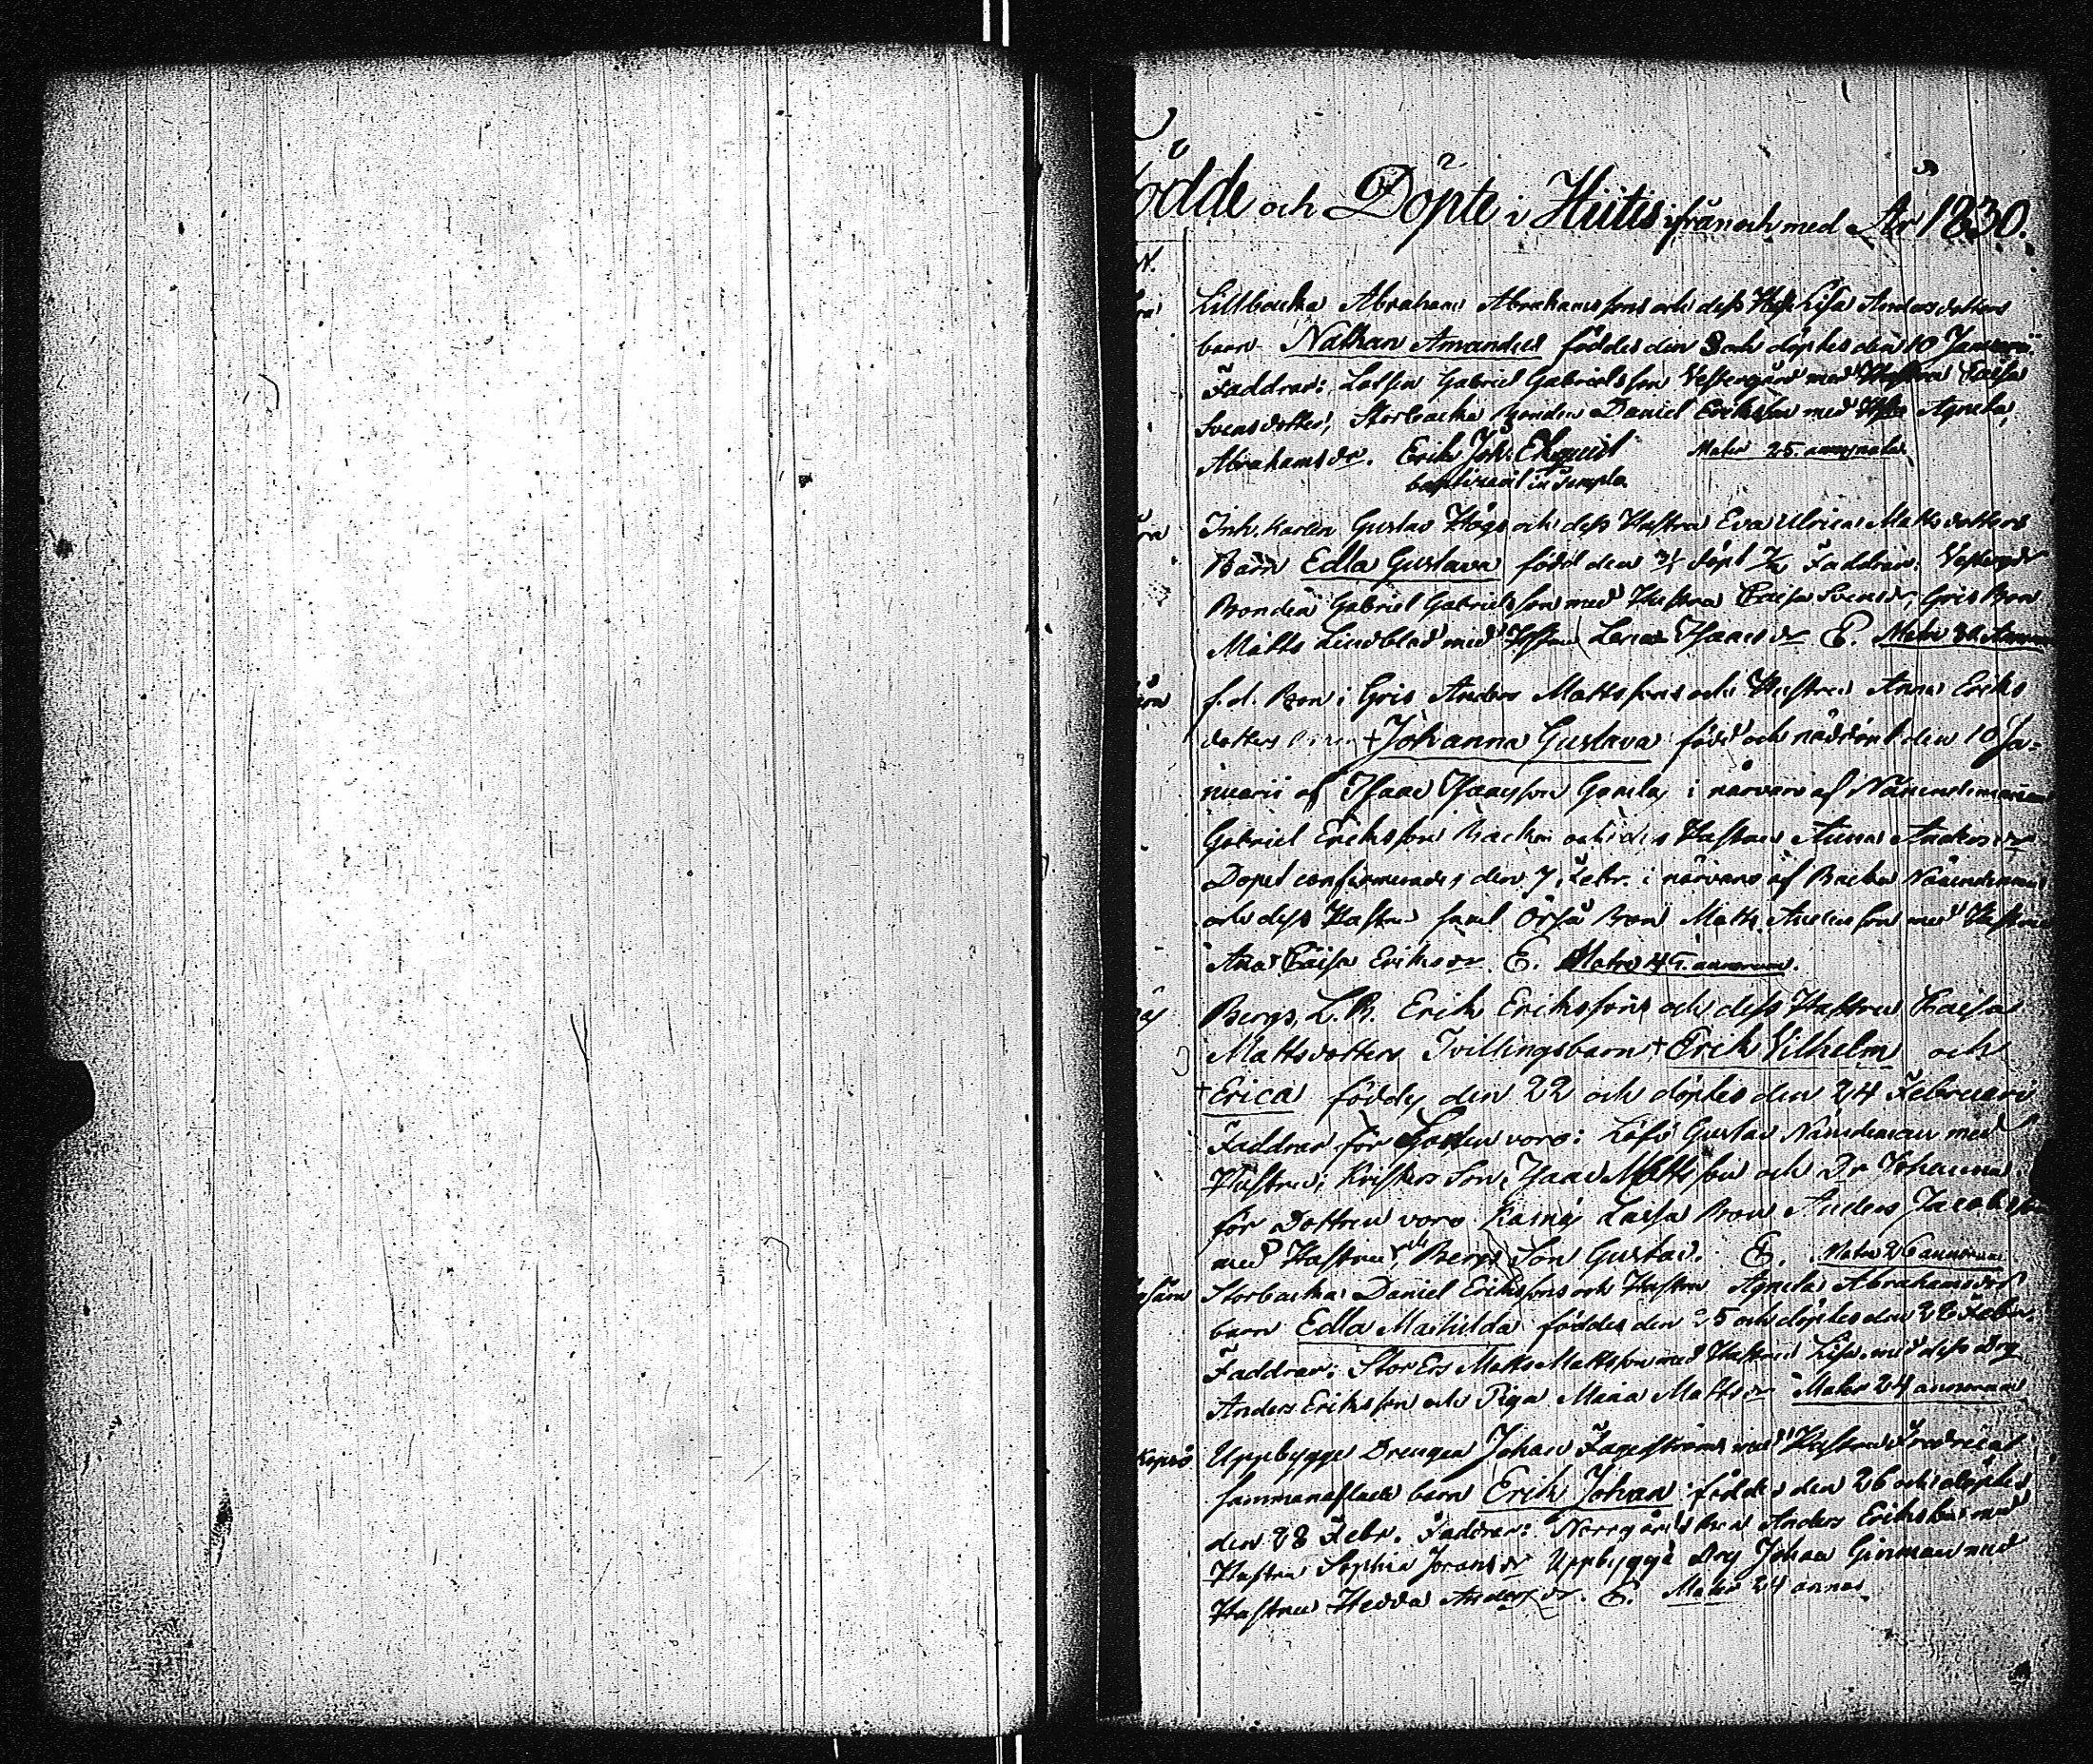 ödde och Döpte i Hiitis ifrån och med År 1830.
Lillbacka Abraham Abrahamssons och dess Hust Lisa Andersdotters
barn Nathan Amandus föddes den 8 och döptes den 10 Januarii
Faddrar: Gabriel Gabrielsson Vestergård med Hustru Caisa
Svensdotter, Storbacka Bonden Daniel Eriksson med Hust Agneta
Abrahamsdr. Erik Joh. Ekquist Mater 25. annos nata.
baptizavit in templo
Inh. Karlen Gustav Hög och dess Hustru Eva Ulrica Mattsdotters
Barn Edla Gustava född den döpt Faddrar:
Bonden Gabriel Gabrielsson med Hustru Caisa Svensdr, Gris Bon
Matts Lindblad med Hustru Lena Isaacsdr E. Mater
f.d. Bon i Gris Anders Mattssons och Hustrus Anna Eriks
dotters Barn † Johanna Gustava född och nöddöpt den 10 Ja-
nuarii af Isaac Isaacsson Gamla, i närvaro af Nämndemannen
Gabriel Eriksson Backa och dess Hustru Anna Andersdr
Dopet confirmerades den 7 Febr. i närvaro af Backa Nämndeman
och dess Hustru samt Örså Bon Matts Andersson med Hustru
Ana Caisa Eriksdr. E. Mater 45. annorum.
Bergs, L.B. Erik Erikssons och dess Hustru Caisa
Mattsdotters Tvillingsbarn † Erik Vilhelm och
† Erica föddes den 22 och döptes den 24 Februari
Faddrar för Gossen voro: Löfö Gustav Nämndeman med
Hustru, Kristers Son, Isaac Mattsson och Dr Johanna.
för Dottren voro Kasnä Bon Anders Jacobsson
med Hustru, och Bergs Son Gustav. E. Mater 26 annorum
Storbacka Daniel Erikssons och Hustru Agneta Abrahamsdrs
barn Edla Mathilda föddes den 25 och döptes den 28 Febr.
Faddrar: Stor Ers Matts Mattsson med Hustru Lisa, med dess Drg
Anders Eriksson och Piga Maia Mattsdr Mater 24 annorum
Kopsö Uppbygge Drengen Johan Fagerströms med Hustru Fredrica
sammanaflade barn Erik Johan föddes den 26 och döptes
den 28 Febr. Faddrar: Norrgårds Bon Anders Eriksson med
Hustru Sophia Joransdr Uppbygge Drg Johan Ginman med
Hustru Hedda Andersdr. E. Mater 24 annos